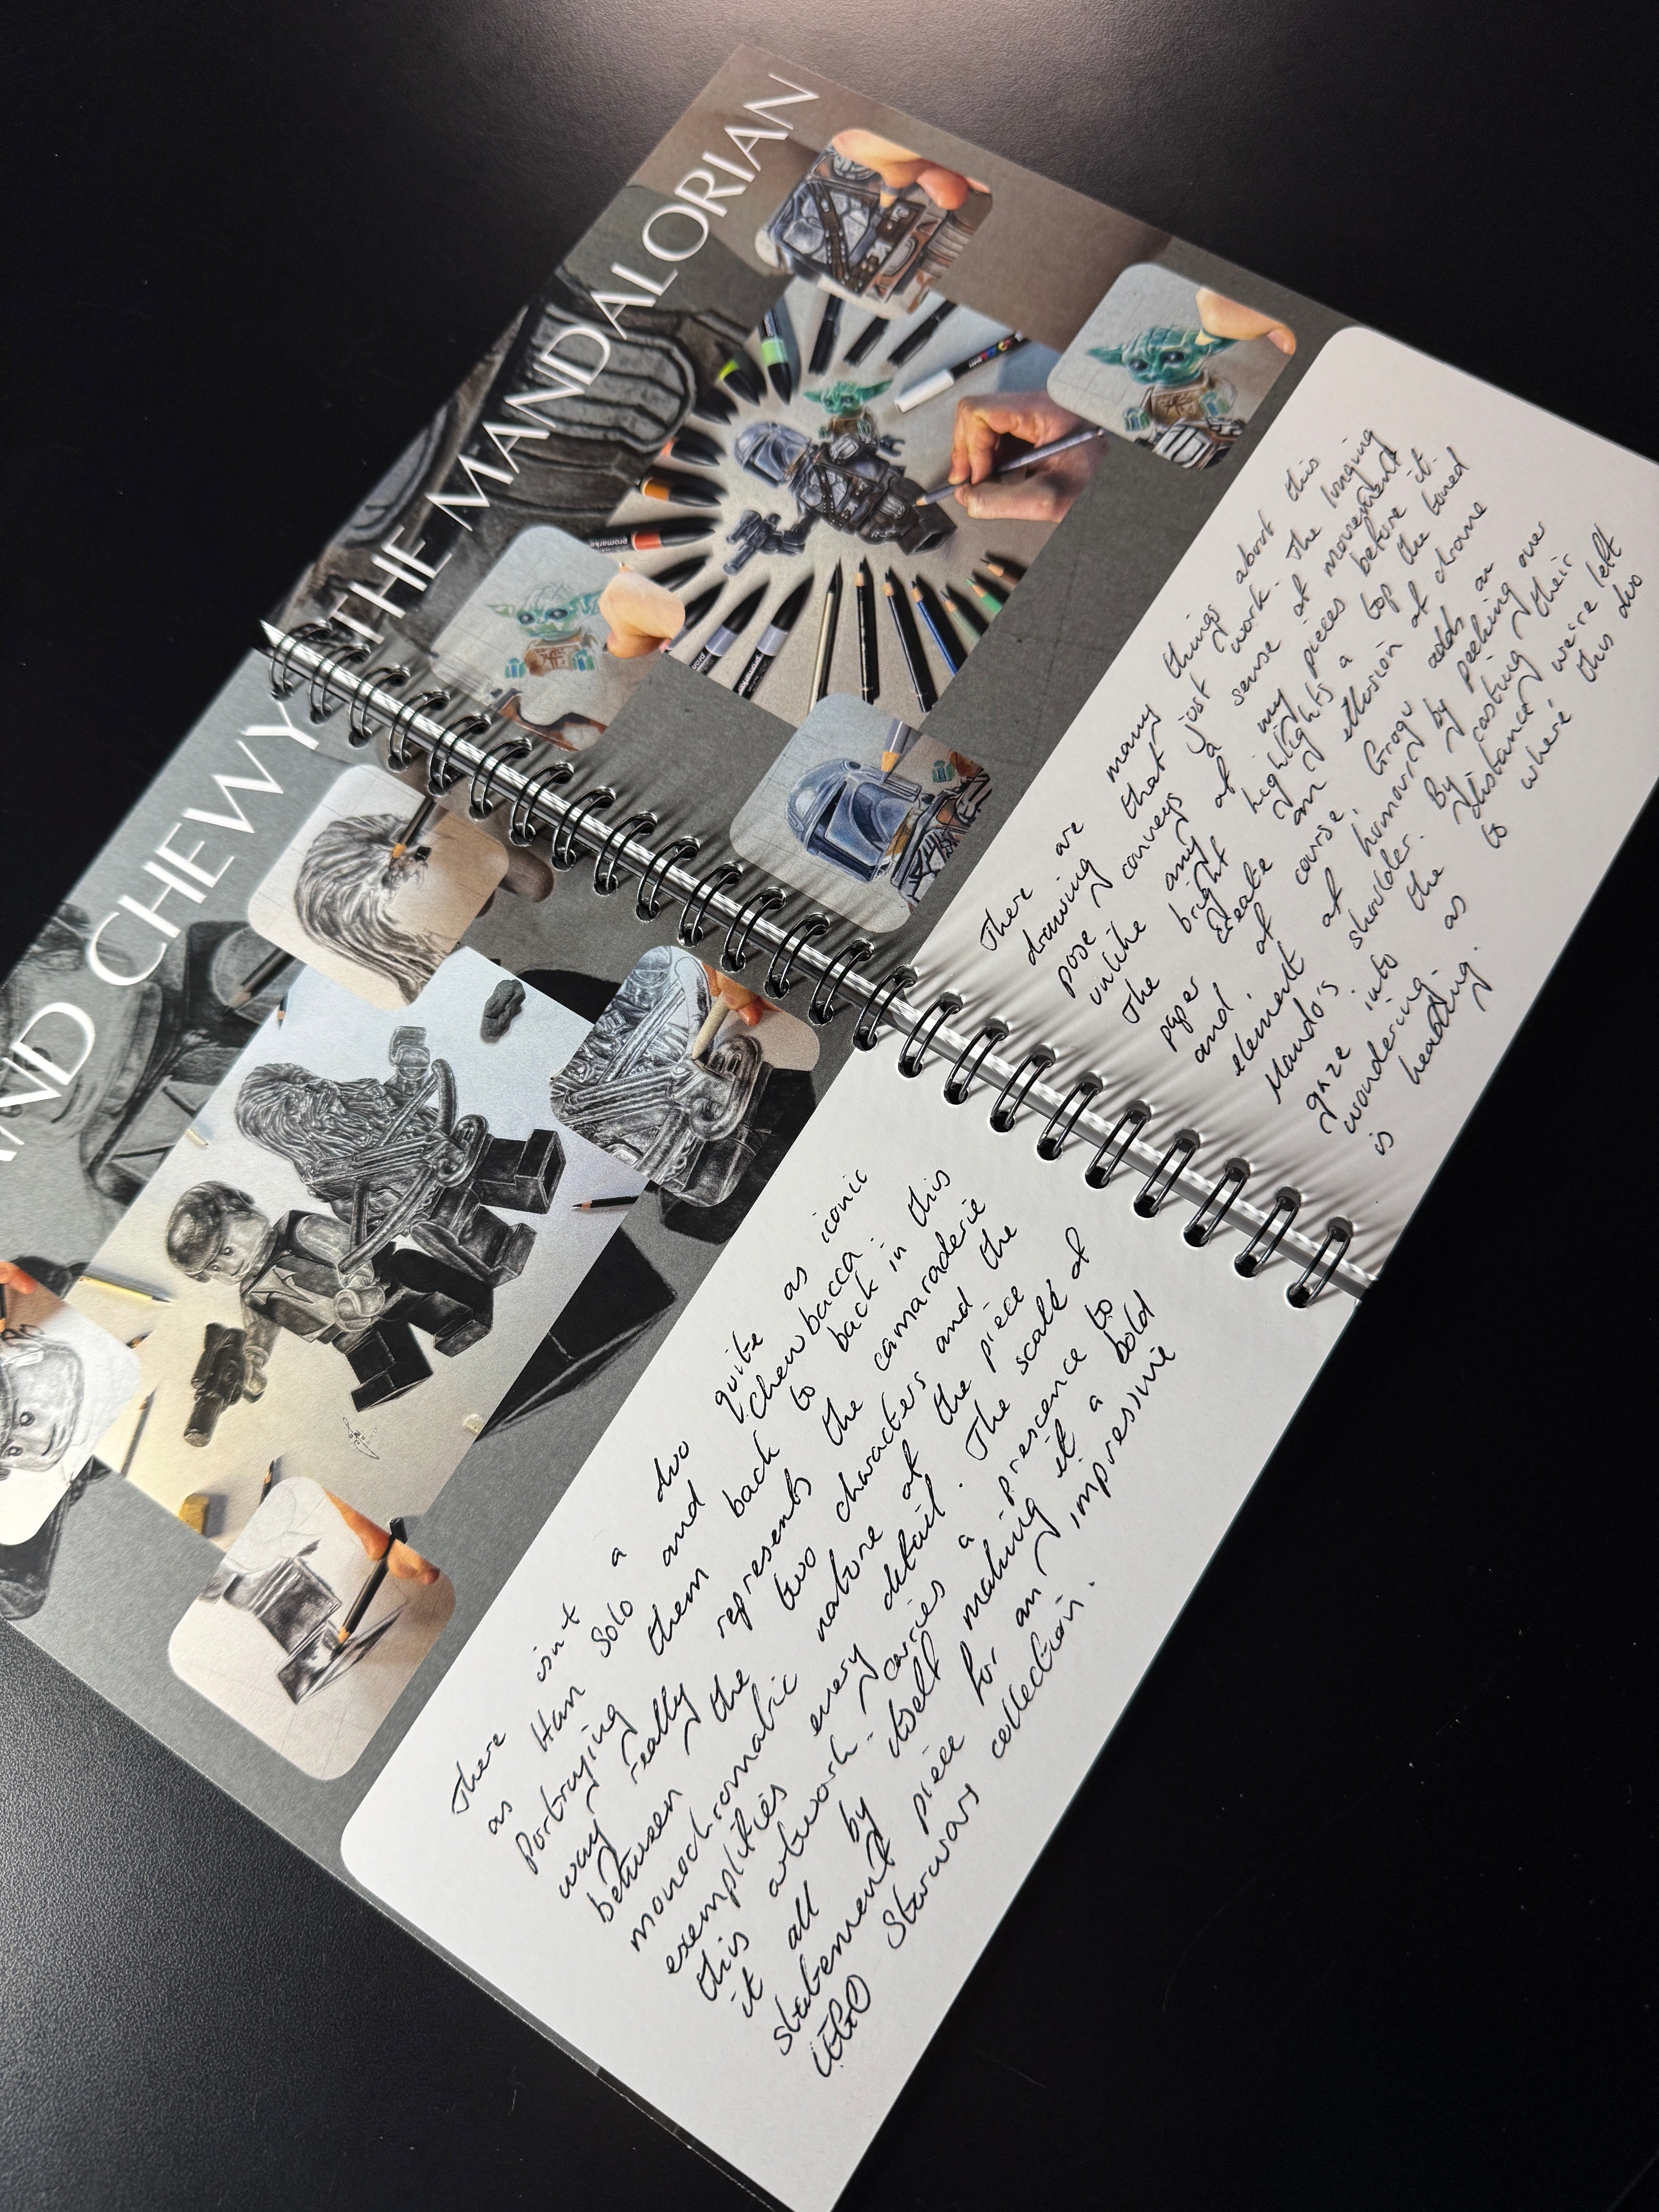 AND CHEWY
There isnt a duo quite as iconic
as Han Solo and Chewbacca.
Portraying them back to back in this
way really represents the camaraderie
between the two characters and the
monochromatic nature of the piece
exemplifies every detail. The scale of
this artwork carries a prescence to
it all by itself making it a bold
statement piece for an impressive
LEGO Starwars collection.
THE MANDALORIAN
There are many things about this
drawing that just work. The lunging
pose conveys a sense of movement
unlike any of my pieces before it.
The bright highlights a top the toned
paper create an illusion of chrome
and of course, Grogu adds an
element of humour by peeking over
Mando's shoulder. By casting their
gaze into the distance we're left
wondering as to where this duo
is heading.
promarker
promarker